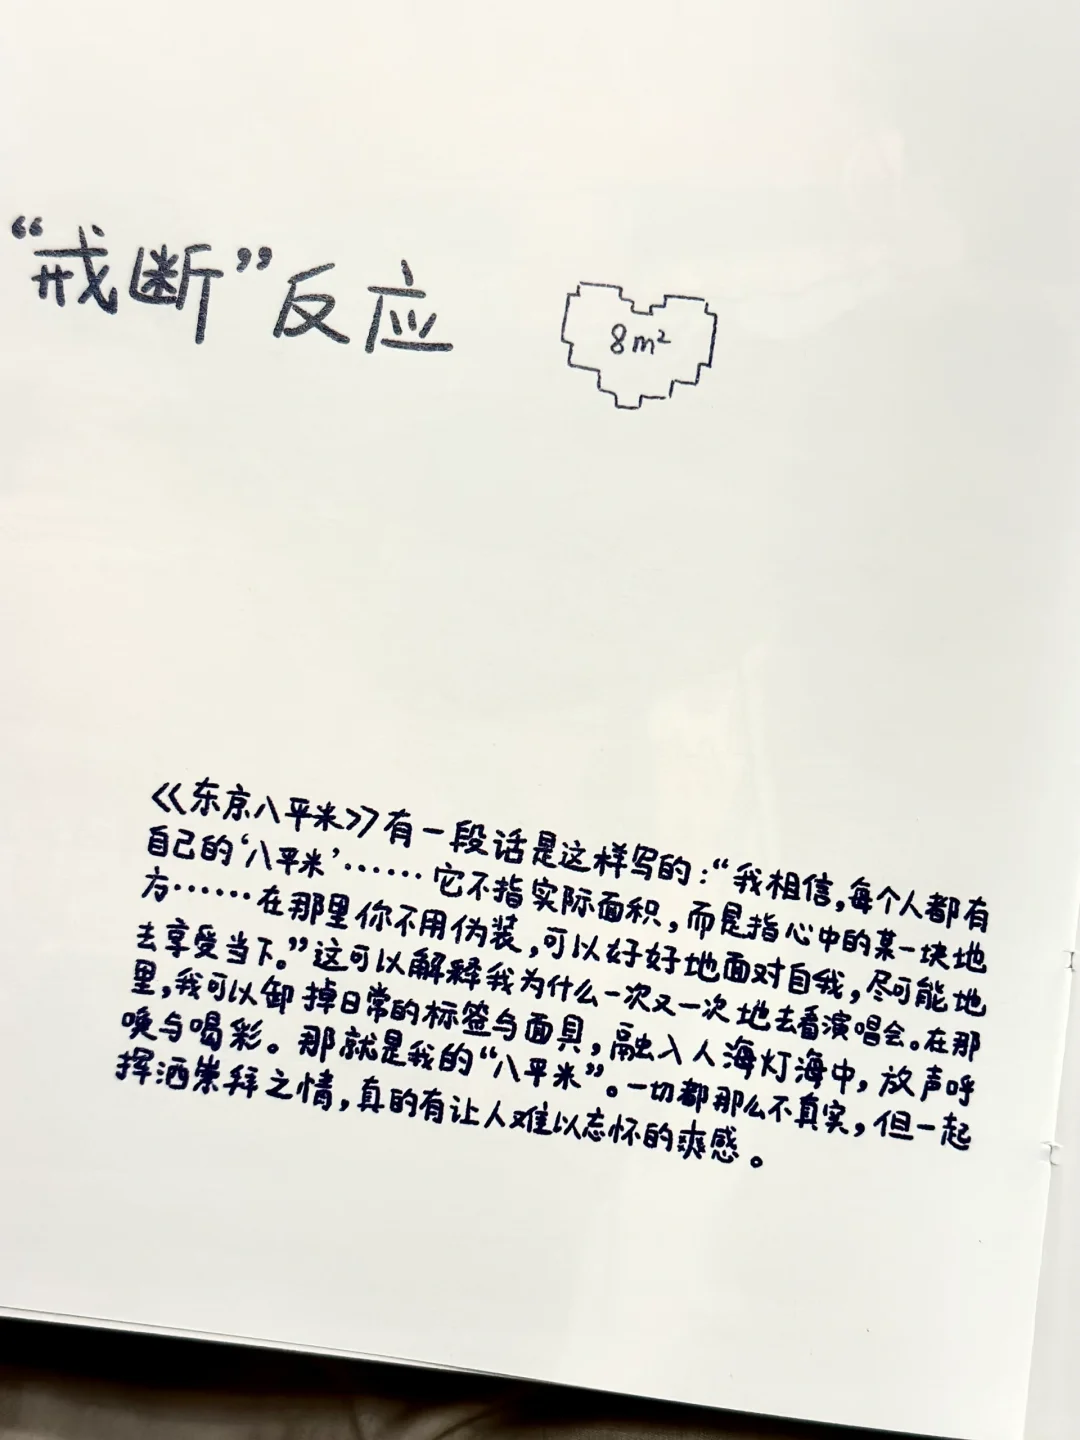 “戒断”反应
8m²
《东京八平米》有一段话是这样写的:“我相信,每个人都有
自己的‘八平米’……它不指实际面积,而是指心中的某一块地
方……在那里你不用伪装,可以好好地面对自我,尽可能地
去享受当下。”这可以解释我为什么一次又一次地去看演唱会。在那
里,我可以卸掉日常的标签与面具,融入人海灯海中,放声呼
唤与喝彩。那就是我的“八平米”。一切都那么不真实,但一起
挥洒崇拜之情,真的有让人难以忘怀的爽感。